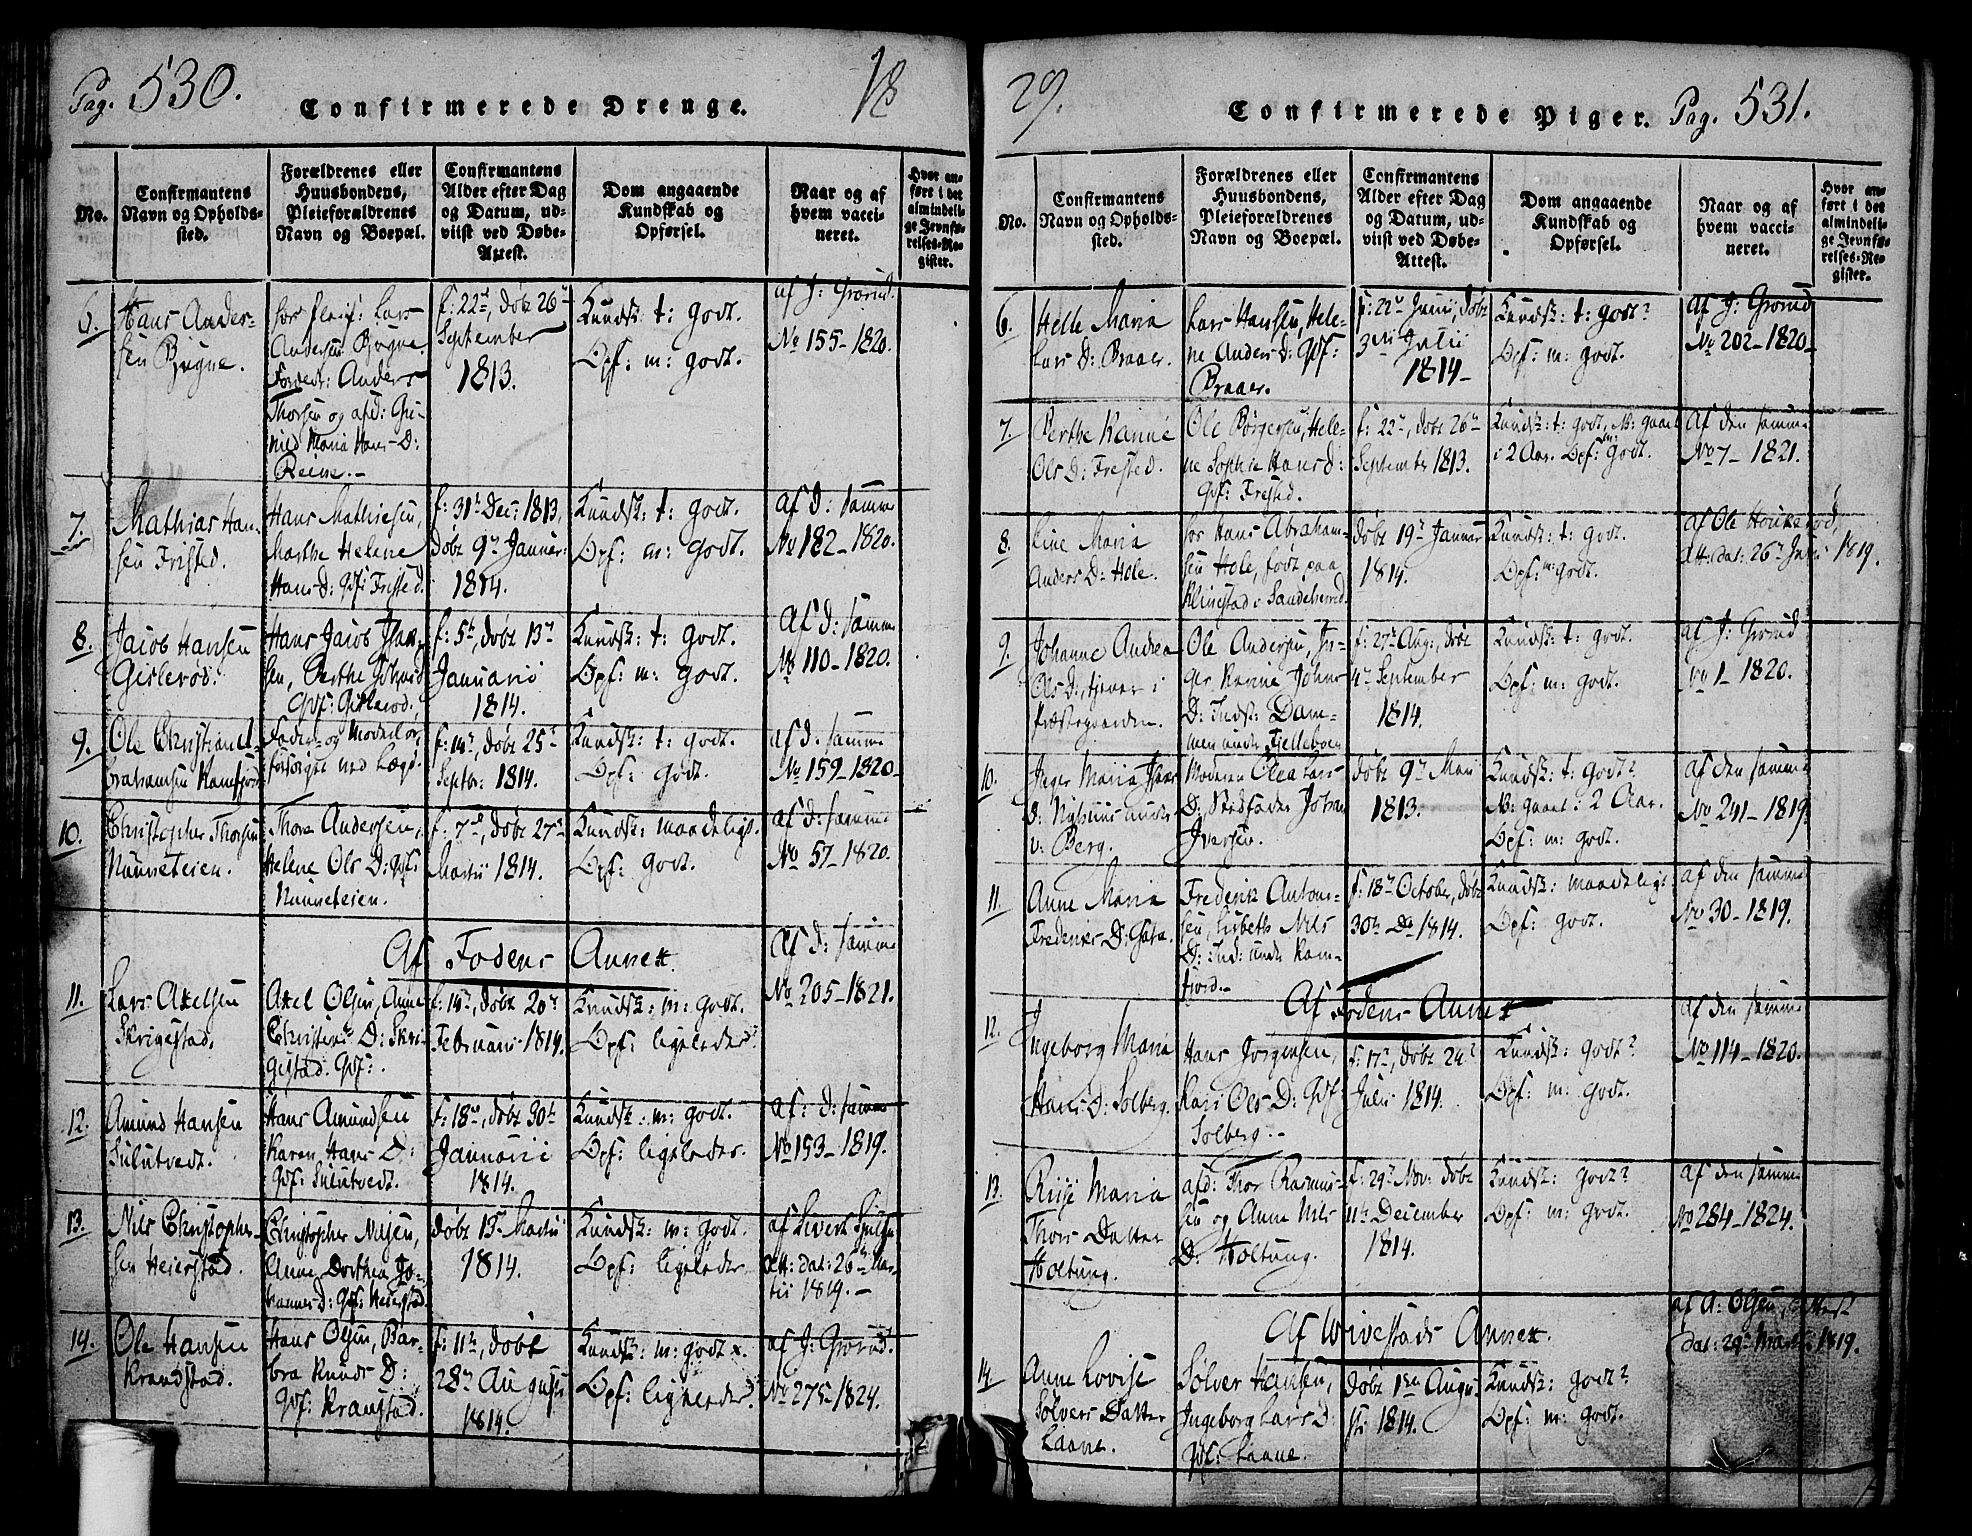 Pag. 530.
Confirmerede Drenge.
18
No.
Confirmantens
Navn og Opholds-
sted.
Forældrenes eller
Huusbondens,
Pleieforældrenes
Navn og Boepæl.
Confirmantens
Alder efter Dag
og Datum, ud-
viist ved Døbe-
Attest.
Dom angaaende
Kundskab og
Opførsel.
Naar og af
hvem vacci-
neret.
Hvor an-
ført i det
almindeli-
ge Jevnfø-
relses-Re-
gister.
6.
Hans Ander-
sen Bøgne.
Lars
Andersen Bøgne.
Foræld: Anders
Thorsen og afd: Gu-
nild Maria Hans-D:
Reene.-
f: 22de, døbt 26de
September
1813.
Kundsk: t: godt.
Opf: m: godt.
af J: Grorud.
No 155-1820.
7.
Mathias Han-
sen Fristed.
Hans Mathiesen,
Marthe Helene
Hans D: Gdf: Fristed.
f: 31te Dec: 1813,
døbt 9de Januar:
1814.
Kundsk: t: godt.
Opf: m: godt.
af d: samme
No 182-1820.
8.
Jacob Hansen
Gislerød.
Hans Jacob Isac-
sen, Berthe
Gdf: Gislerød.
f: 5te, døbt 13de
Januarii
1814.
Kundsk: t: godt.
Opf: m: godt.
af d: samme
No 110-1820.
9.
Ole Christian A-
brahamsen Ramsfjord
Fader- og Moderløs
forsørget ved Lægd.
f: 14de, døbt 25de
Septbr: 1814.
Kundsk: t: godt.
Opf: godt.
af d. samme
No 159-1820
10.
Christopher Thorsen
Nunneteien.
Thore Andersen,
Helene Ols D: Gdf:
Nunneteien.
f: 7de, døbt 27de
Martii 1814.
Kundsk: maadeligt.
Opf: godt.
af d: samme
No 57-1820.
Af Fodens Annex.
11.
Lars Axelsen
Skrigestad.
Axel Olsen, Anne
Christens D: Skri-
gestad. Gdf:.
f: 14de, døbt 20de
Februarii 1814.
Kundsk: m: godt.
Opf: ligeledes.
af d: samme
No 205-1821.
12.
Amund Hansen
Sulutvedt.
Hans Amundsen
Karen Hans D:
Gdf: Sulutvedt.
f: 18de, døbt 30te
Januarii
1814.
Kundsk: m: godt.
Opf: ligeledes.
af: d: samme
No 153-1819.
13.
Nils Christopher-
sen Heierstad.
Christopher Nilsen,
Anne Dorthea Jo-
hannes D: Gdf: Heierstad.
døbt 13de Martii
1814.
Kundsk: m: godt.
Opf: ligeledes.
af Sivert
Att: dat: 26de Mar-
tii 1819.-
14.
Ole Hansen
Kranstad.
Hans Olsen, Bar-
bra Knuds D:
Gdf: Kranstad.
f: 11te, døbt
28de Augusti
1814.
Kundsk: m: godt.
Opf: ligeledes.
af J: Grorud.
No 275-1824.
29.
Confirmerede Piger.
Pag. 531.
No.
Confirmantens
Navn og Opholds-
sted.
Forældrenes eller
Huusbondens,
Pleieforældrenes
Navn og Boepæl.
Confirmantens
Alder efter Dag
og Datum, ud-
viist ved Døbe-
Attest.
Dom angaaende
Kundskab og
Opførsel.
Naar og af
hvem vacci-
neret.
Hvor an-
ført i det
almindeli-
ge Jevnfø-
relses-Re-
gister.
6.
Helle Maria
Lars D: Braaer.
Lars Hansen, Hele-
ne Anders D: Gdf:
Braaer.
f: 22de Junii, døbt
3die Julii
1814-
Kundsk: t: godt
Opf: m: godt.
af J: Grorud
No 202-1820-
7.
Berthe Karine
Ols D: Fristed.
Ole Børgersen, Hele-
ne Sophie Hans D:
Gdf: Fristed.
f: 22de, døbt 26de
September 1813.
Kundsk: t: godt, NB: gaaet
i 2 Aar. Opf: m: godt.
af den samme
No 7-1821.
8.
Line Maria
Anders D: Hole.
hos Hans Abraham-
sen Hole, født paa
Klinestad i Sandeherred.
døbt 19de Januar
1814.
Kundsk: t: godt.
Opf: m: godt.
af Ole Houkerød,
Att: dat: 26de Junii 1819.
9.
Johanne Andrea
Ols D:, tjener i
Præstegaarden.
Ole Andersen, In-
ger Karine Johns
D: Indst: Dam-
men under Fjelleboen
f: 27de Aug:, døbt
4de September
1814.
Kundsk: t: godt.
Opf: m: godt.
af J: Grorud
No 1-1820.
10.
Inger Maria Ivers
D: Nyhuus under
v: Berg.
Moderen Olea Lars
D:, Stedfader Johan
Iversen.
døbt 9de Maii
1813.
Kundsk: t: godt
NB: gaaet i 2 Aar.
Opf: m: godt.
af den samme
No 241-1819.
11.
Anne Maria
Frederics D:
Frederik Antons-
sen, Lisbeth Nils
D: Ind: under Ram-
fjord.-
f: 18de October, døbt
30te Do 1814.
Kundsk: maadeligt
Opf: godt.
af den samme
No 30-1819.
Af Fodens Annex
12.
Ingeborg Maria
Hans D: Solberg.
Hans Jørgensen,
Kari Ols D: Gdf:
Solberg.-
f: 17de, døbt 24de
Julii 1814.
Kundsk: godt
Opf: m: godt.
af den samme
No 114-1820.
13.
Maria
Thors Datter
Holtung.
afd: Thor Rasmus-
sen og Anne Nils
D: Holtung.
f: 29de Nov: døbt
11te December
1814.
Kundsk: godt
Opf: m: godt.
af den samme
No 284-1824.
Af Wivestads Annex.
14.
Anne Lovise
Sølvers Datter
Laane.
Sølver Hansen,
Ingeborg Lars D:
Gdf: Laane.
døbt 1ste Augu-
sti 1814.
Kundsk: godt
Opf: m: godt.
af A: Olsen, Attest
dat: 29de Martii 1819.